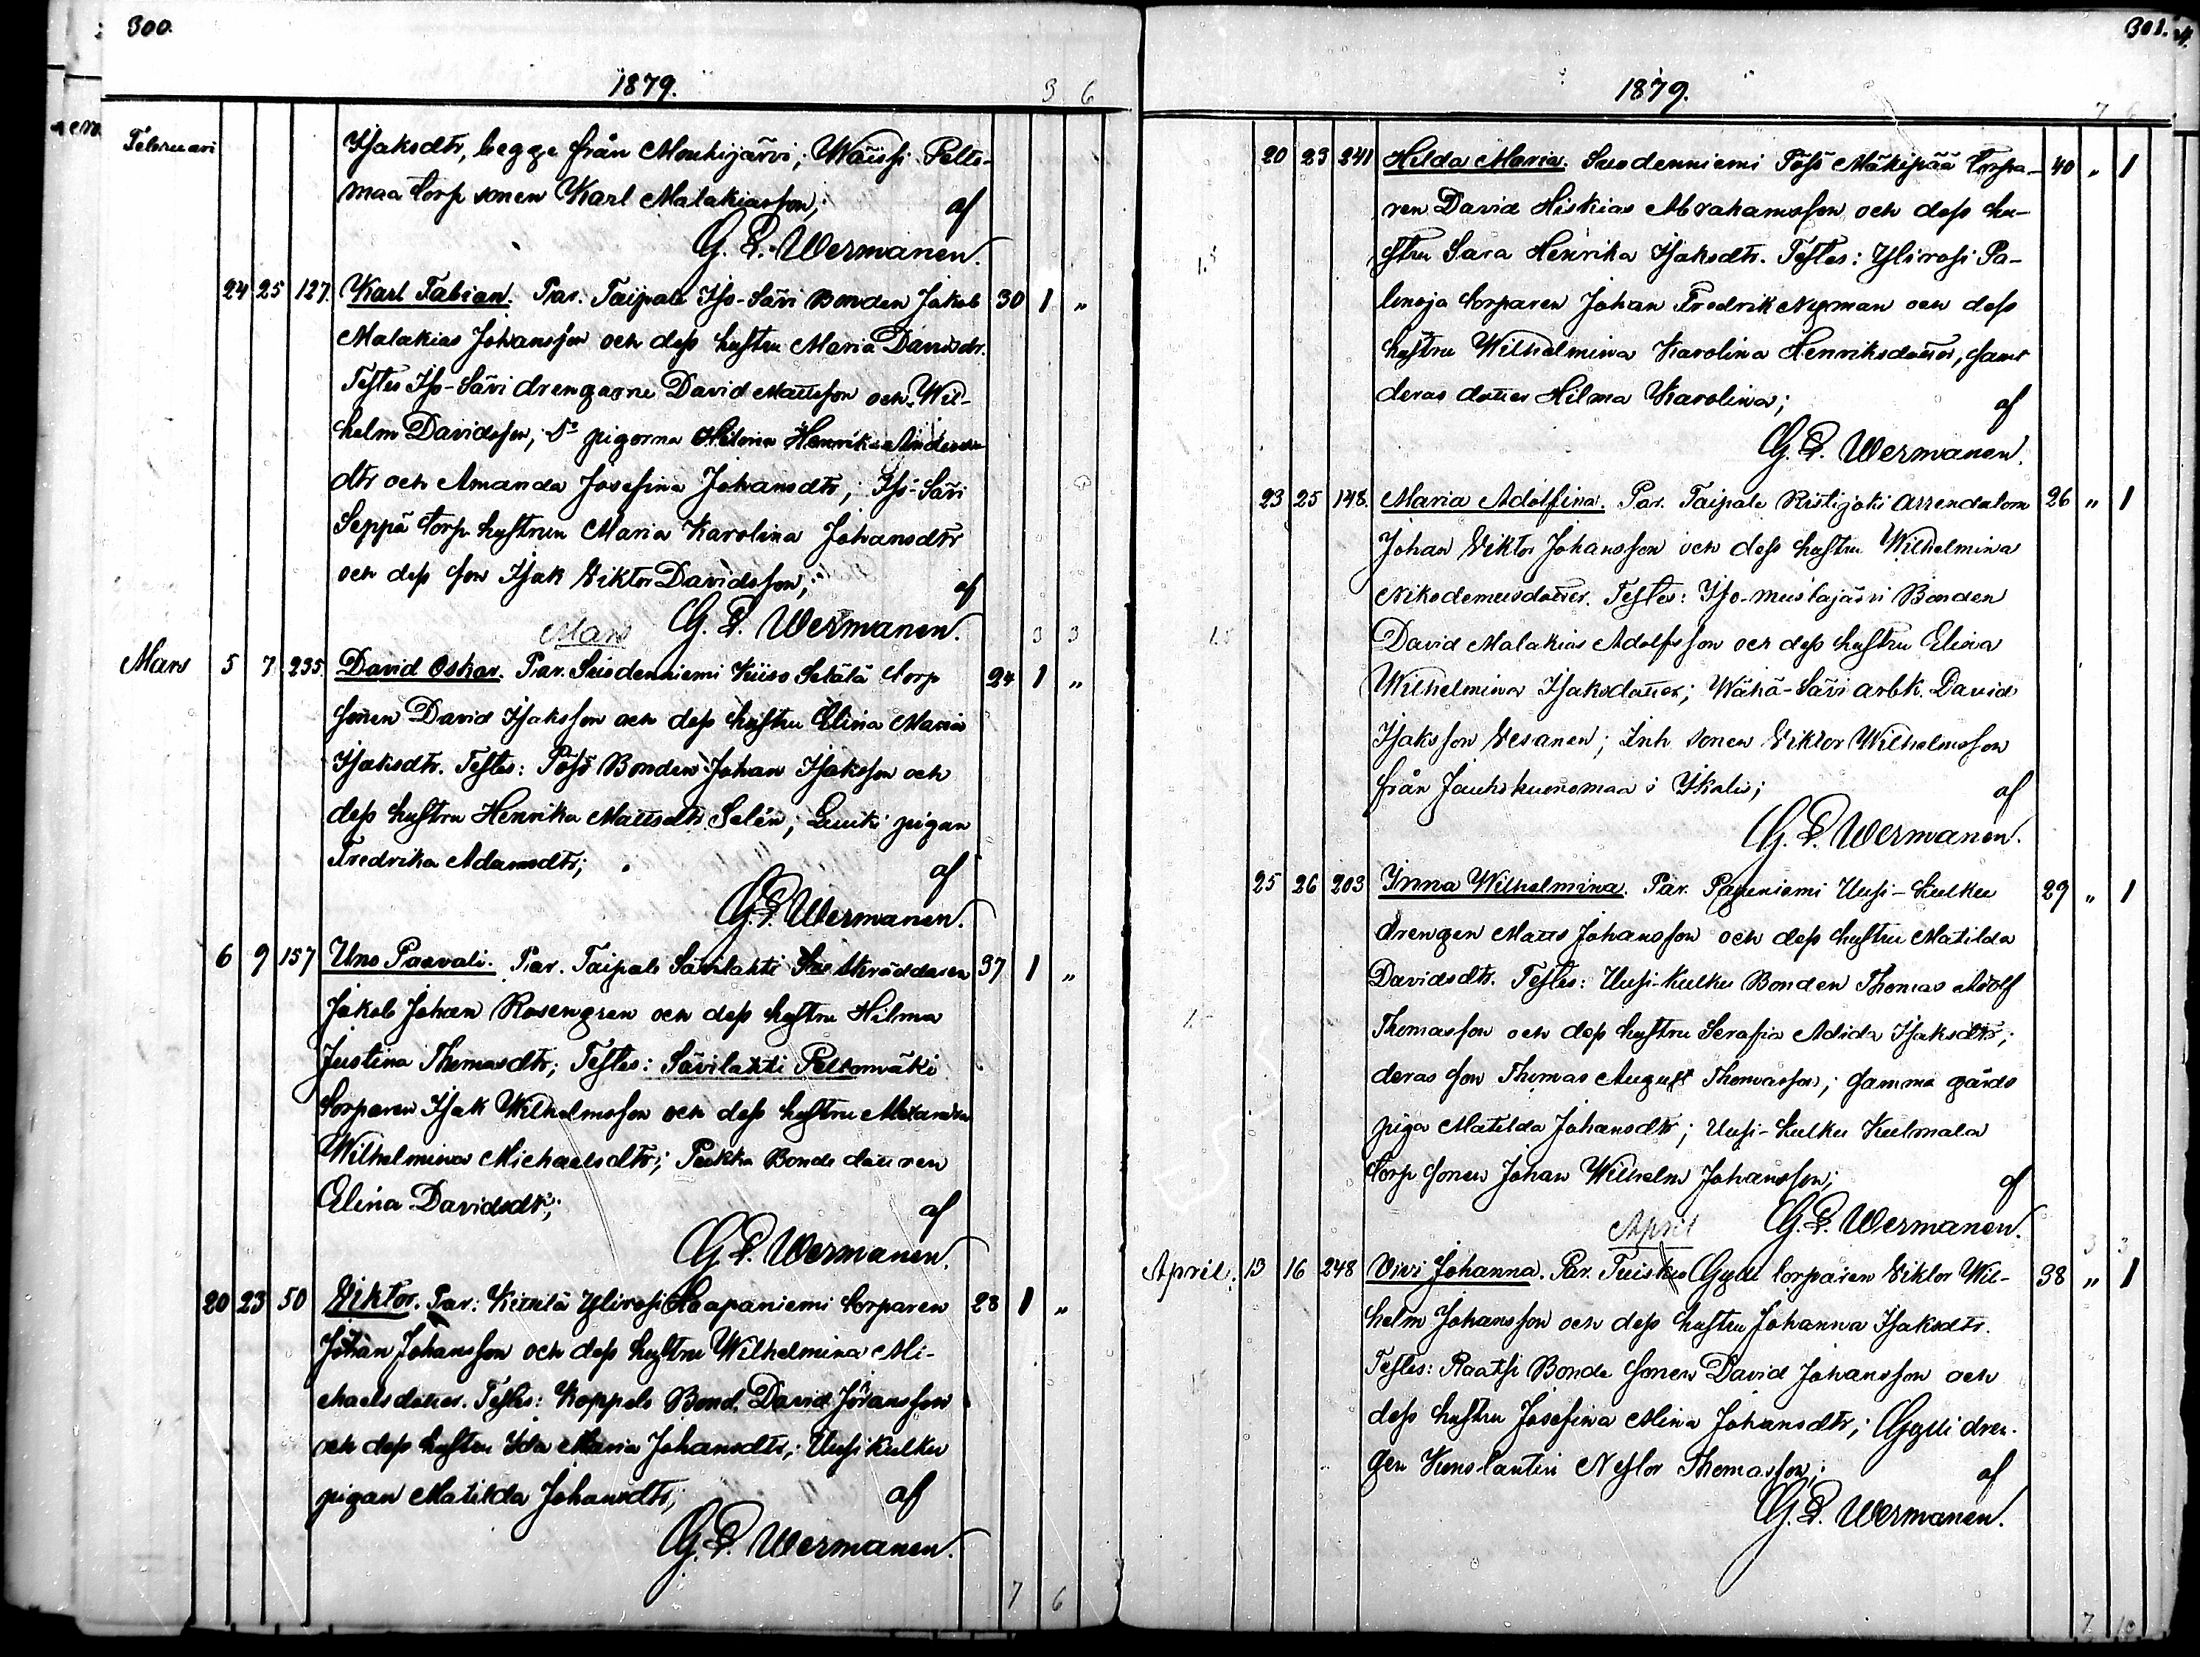 300.
1879.
3 6
Februari
Isaksdtr, begge från Mouhijärvi; Waüssi Pelto-
maa torp sonen Karl Malakiasson; af
G. P. Wermanen.
24 25 127. Karl Fabian. Par. Taipale Iso-Sävi Bonden Jakob 30 1 "
Malakias Johansson och dess hustru Maria Davidsdr.
Testes Iso-Sävi drengarne David Mattsson och Wil-
helm Davidsson; Do pigorna Hilma Henrika Anders
dtr och Amanda Josefina Johansdtr; Iso-Sävi
Seppä torp hustrun Maria Karolina Johansdtr
och dess son Isak Viktor Davidsson; af
Mars G. P. Wermanen. 3 3
Mars 5 7 235 David Oskar. Par. Suodenniemi Kiiso Setälä torp 24 1 "
sonen David Isaksson och dess hustru Elina Maria
Isaksdtr. Testes: Pösö Bonden Johan Isaksson och
dess hustru Henrika Mattsdtr Selén; pigan
Fredrika Adamsdtr; af
G. P. Wermanen.
6 9 157 Uno Paavali. Par. Taipale Sävilahti skräddaren 37 1 "
Jakob Johan Rosengren och dess hustru Hilma
Justina Thomasdtr; Testes: Sävilahti Peltomäki
torparen Isak Wilhelmsson och dess hustru Alexandra
Wilhelmina Michaelsdtr; Pukka Bonde dottren
Elina Davidsdtr; af
G. P. Wermanen.
20 23 50 Viktor. Par: Kittilä Ylirosi Haapaniemi torparen 28 1 "
Johan Johansson och dess hustru Wilhelmina Mi-
chaelsdotter. Testes: Koppelo Bond. David Johansson
och dess hustru Ida Maria Johansdtr; Uusi kulku
pigan Matilda Johansdtr; af
G. P. Wermanen.
7 6
301.
1879.
7 6
20 23 241 Hilda Maria. Suodenniemi Pösö Mäkipää torpa- 40 " 1
ren David Hiskias Abrahamsson och dess hu-
stru Sara Henrika Isaksdtr. Testes: Ylirosi Pa-
lonoja torparen Johan Fredrik Nyman och dess
hustru Wilhelmina Karolina Henriksdotter, samt
deras dotter Hilma Karolina; af
G. P. Wermanen.
23 25 148. Maria Adolfina. Par. Taipale Ristijoki arrendatorn 26 " 1
Johan Viktor Johansson och dess hustru Wilhelmina
Nikodemusdotter. Testes: Iso-Mustajärvi Bonden
David Malakias Adolfsson och dess hustru Elina
Wilhelmina Isaksdotter; Wähä-Sävi arbk. David
Isaksson Vesanen; Inh sonen Viktor Wilhelmsson
från Jauhokuonomaa i Ikalis; af
G. P. Wermanen.
25 26 203 Inna Wilhelmina. Par. Pajuniemi Uusi-kulku 29 " 1
drengen Matts Johansson och dess hustru Matilda
Davidsdtr. Testes: Uusi-kulku Bonden Thomas Adolf
Thomasson och dess hustru Serafia Adida Isaksdtr;
deras son Thomas August Thomasson; samma gårds
piga Matilda Johansdtr; Uusi-kulku Kulmala
torp sonen Johan Wilhelm Johansson; af
April G. P. Wermanen. 3 3
April. 13 16 248 Vivi Johanna. Par. Tuisku Gylli torparen Viktor Wil- 38 " 1
helm Johansson och dess hustru Johanna Isaksdtr.
Testes: Raatsi Bonde sonen David Johansson och
dess hustru Josefina Mina Johansdtr; Gylli dren-
gen Konstantin Nestor Thomasson; af
G. P. Wermanen.
7 10